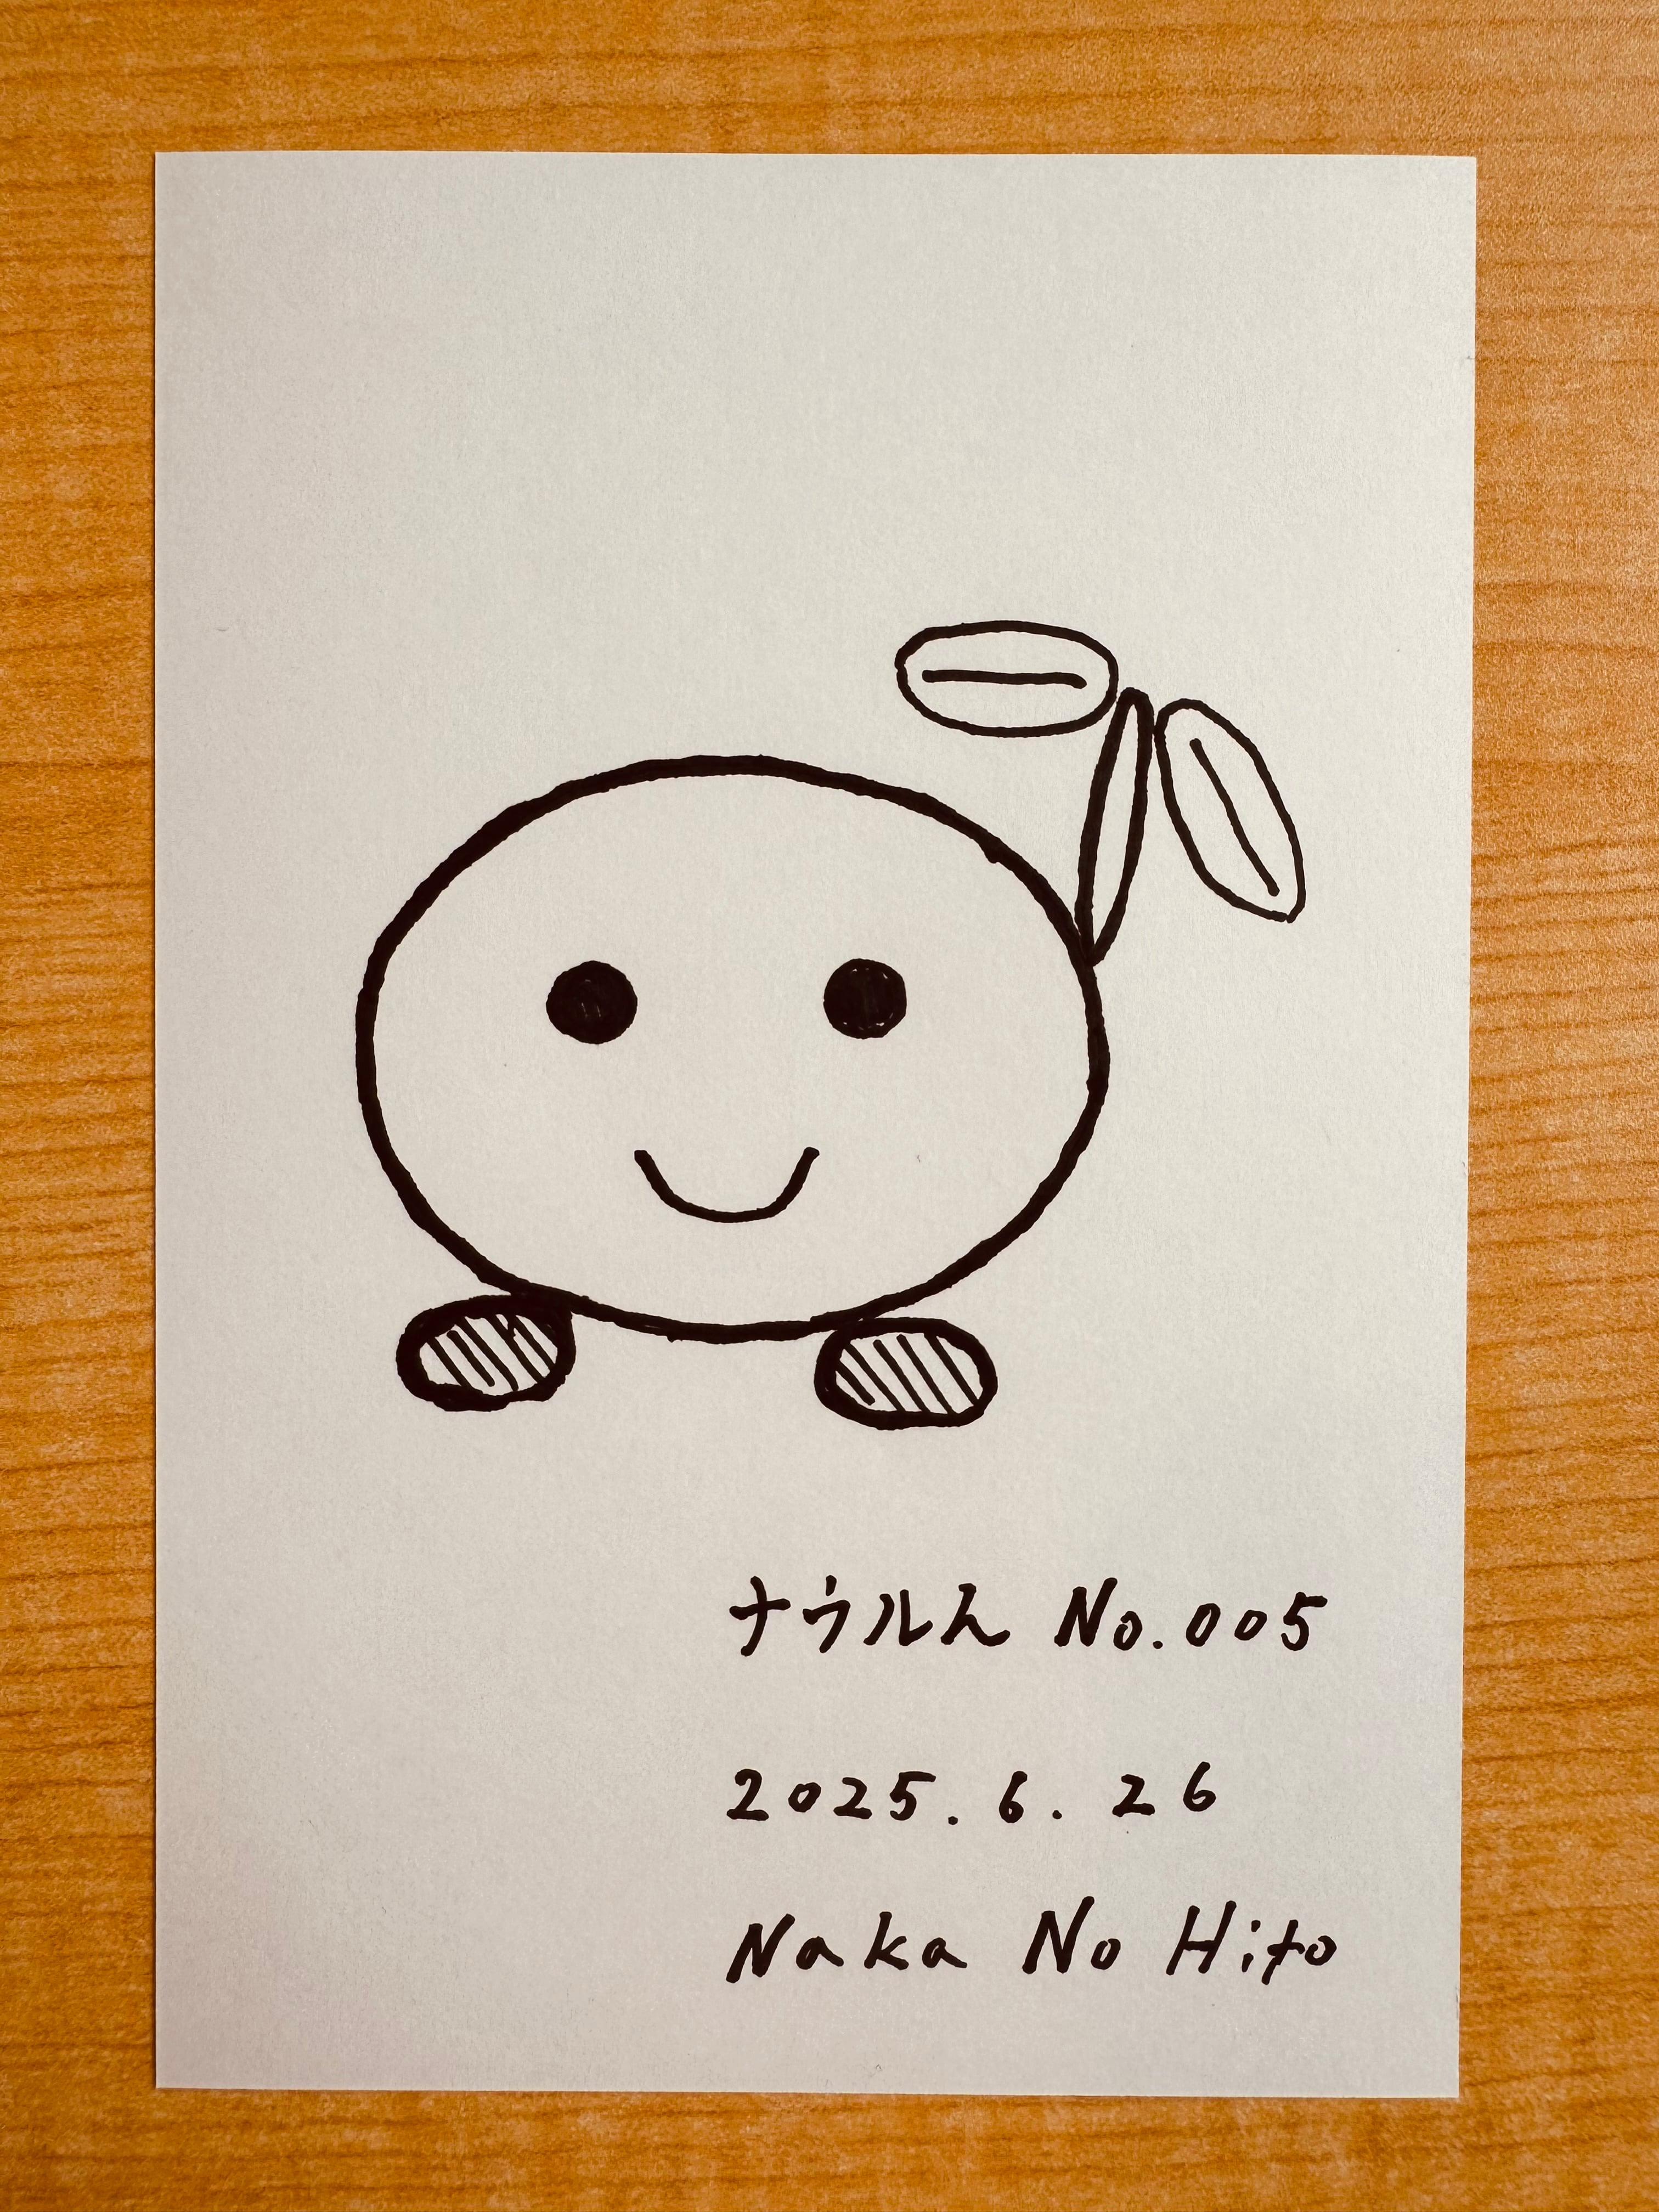 ナウルん No.005
2025.6.26
Naka No Hito